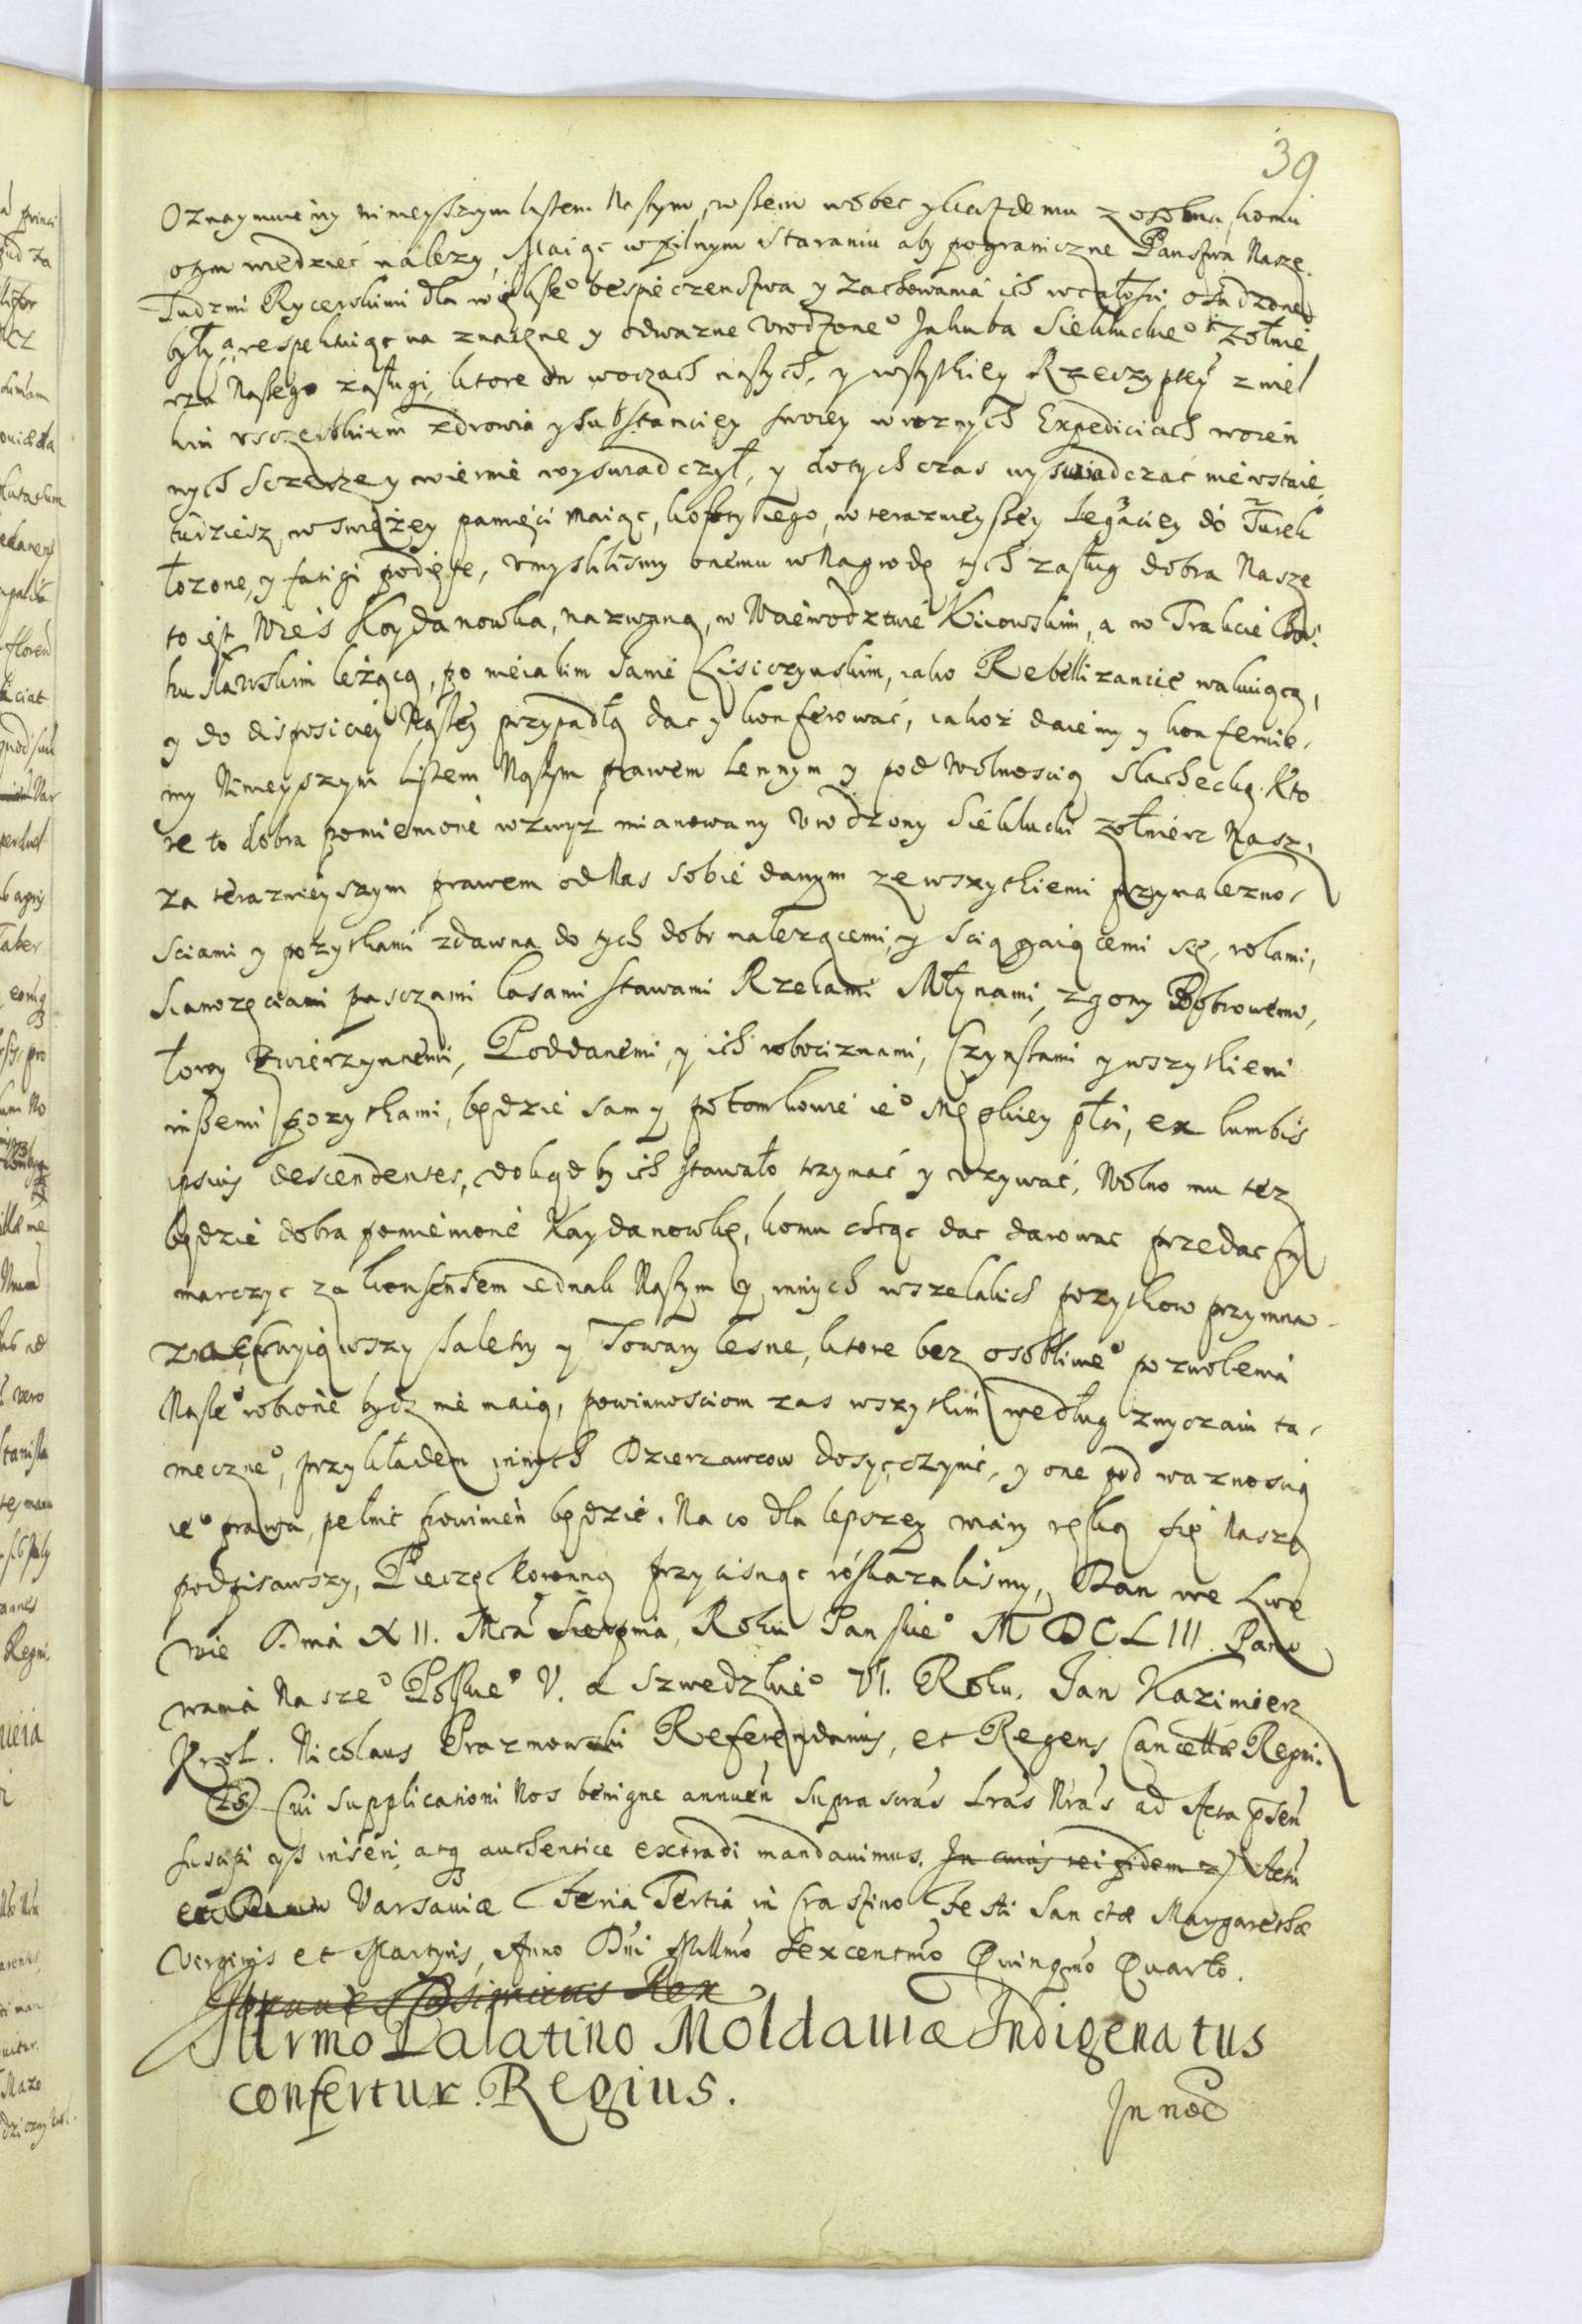 39
Oznaymuiemy ninieyszym listem Naszym, wszem wobec y kazdemu zosobna, komu
otym wiedziec nalezy, Maiąc w pilnym staraniu aby pograniczne Panstwa Nasze
Ludzmi Rycerskimi dla większe° bespieczenstwa y zachowania ich w całosci, osadzone
były, a respektuiąc na znaczne y odwazne Urodzone° Jakuba Siekluckie° zołnie
rza Naszego zasługi, ktore on woczach naszych, y wszytkiey Rzeczyptey z wiel
kim usczerbkiem zdrowia y substanciey swoiey w roznych Expediciach woien
nych sczerze y wiernie wyswiadczył, y dotychczas wyswiadczać nie ustaie,
tudziesz w swiezey pamięci maiąc, koszty iego, w terazneyszey Legaciey do Turek
łozone, y fatigi podięte, umyslilismy onemu w Nagrodę tych zasług dobra Nasze
to iest Wieś Kaydanowka, nazwaną, w Woiewodztwie Kiiowskim, a w Trakcie Bo:
husławskim leżącą, po nieiakim Samie Lisiczynskim, iako Rebellizancie wakuiącą,
y do disposiciey Naszey przypadłą dac y konferować, iakoż daiemy y konferuie,
my Ninieyszym listem Naszym prawem Lennym y pod wolnoscią Slachecką. Kto
re to dobra pomienione wzwyz mianowany Urodzony Sieklucki zołnierz Nasz,
za terazniejszym prawem od Nas sobie danym ze wszytkiemi przynalezno,
sciami y pozytkami zdawna do tych dobr nalezącemi, y sciągaiącemi się, rolami,
Sianozęciami pasczami lasami stawami Rzekami Młynami, zgony Bobrowemi,
łowy zwierzynnemi, Poddanemi, y ich robociznami, Czynszami y wszytkiemi
inszemi pozytkami, będzie sam y potomkowie ie° Męskiey płci, ex lumbis
ipsius descendentes, dokądby ich stawało trzymać y uzywać, Wolno mu tez
będzie dobra pomienione Kaydanowkę, komu chcąc dac darowac przedac fry
marczyc za konsensem iednak Naszym y innych wszelakich pozytkow przymna
zac, wyiąwszy saletry y Towary lesne, ktore bez osobliwe° pozwolenia
Nasze° robione bydz nie maią, powinnosciom zas wszytkim według zwyczaiu ta,
meczne°, przykładem innych Dzierzawcow dosyc czynić, y one pod waznoscią
te° prawa, pełnić powinien będzie. Na co dla lepszey wiary ręką się Naszą
podpisawszy, Pieczęc Koronną przycisnąc roskazalismy, Dan we Lwo
wie Dnia XII. Mca Sierpnia, Roku Panskie° MDCLIII. Pano
wania Nasze° Polskie° V. a Szwedzkie° VI. Roku. Jan Kazimierz
Krol. Nicolaus Prazmowski Referendarius, et Regens Cancellae Regni.
Cui supplicationi Nos benigne annuen suprascras Lras Nras ad Acta psen
suscipi ijs inseri, atq authentice extradi mandavimus. In cuius rei fidem Actu
Varsaviae Feria Tertia in Crastino Festi Sanctae Margarethae
Virginis et Martyris, Anno Dni Millmo Sexcentmo Quingmo Quarto.
Joannes Casimirus Rex
Illrmo Palatino Moldaviae Indigenatus
confertur. Regius.
In noe